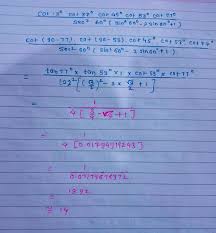 cot 13° cot 37° cot 45° cot 53° cot 77°
sec² 60° (sin² 60° - 2 sin 60° + 1)
cot (90-77). cot (90-53). cot 45°. cot 53°. cot 77°
sec² 60° (sin² 60° - 2 sin 60° + 1)
= tan 77° x tan 53° x 1 x cot 53° x cot 77°
[(√3/2)² - 2 x √3/2 + 1]
= 1
4 [3/4 - √3 + 1]
= 1
4 [0.01794919243]
= 1
0.07179676972
= 13.92
≈ 14